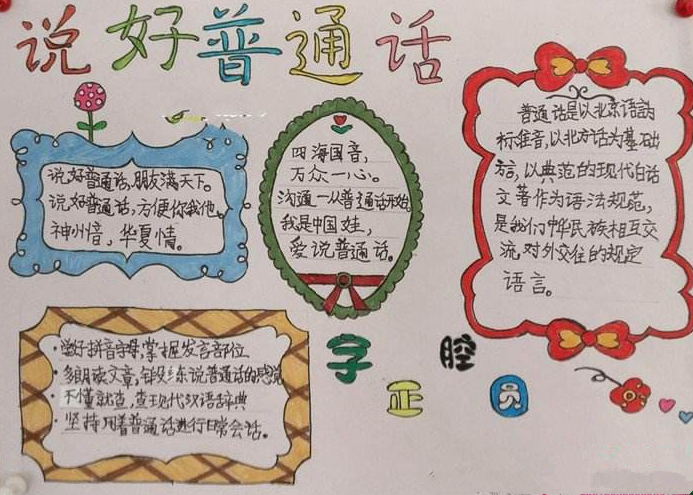 说好普通话
说好普通话,朋友满天下。
说好普通话,方便你我他。
神州音,华夏情。
四海国音,
万众一心。
沟通—从普通话开始
我是中国娃,
爱说普通话。
普通话是以北京语音为
标准音,以北方话为基础
方言,以典范的现代白话
文著作为语法规范,
是我们中华民族相互交
流,对外交往的规定
语言。
·学好拼音字母,掌握发言部位
·多朗读文章,锻炼说普通话的感觉
·不懂就查,查现代汉语辞典
·坚持用着普通话进行日常会话。
字正腔圆